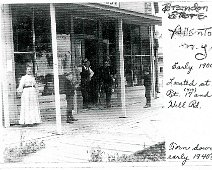 Brandon
Store
N.Y.
Early 190
Located at
Rt. 17 and
Hill Rd.
Torn down
early 1940's